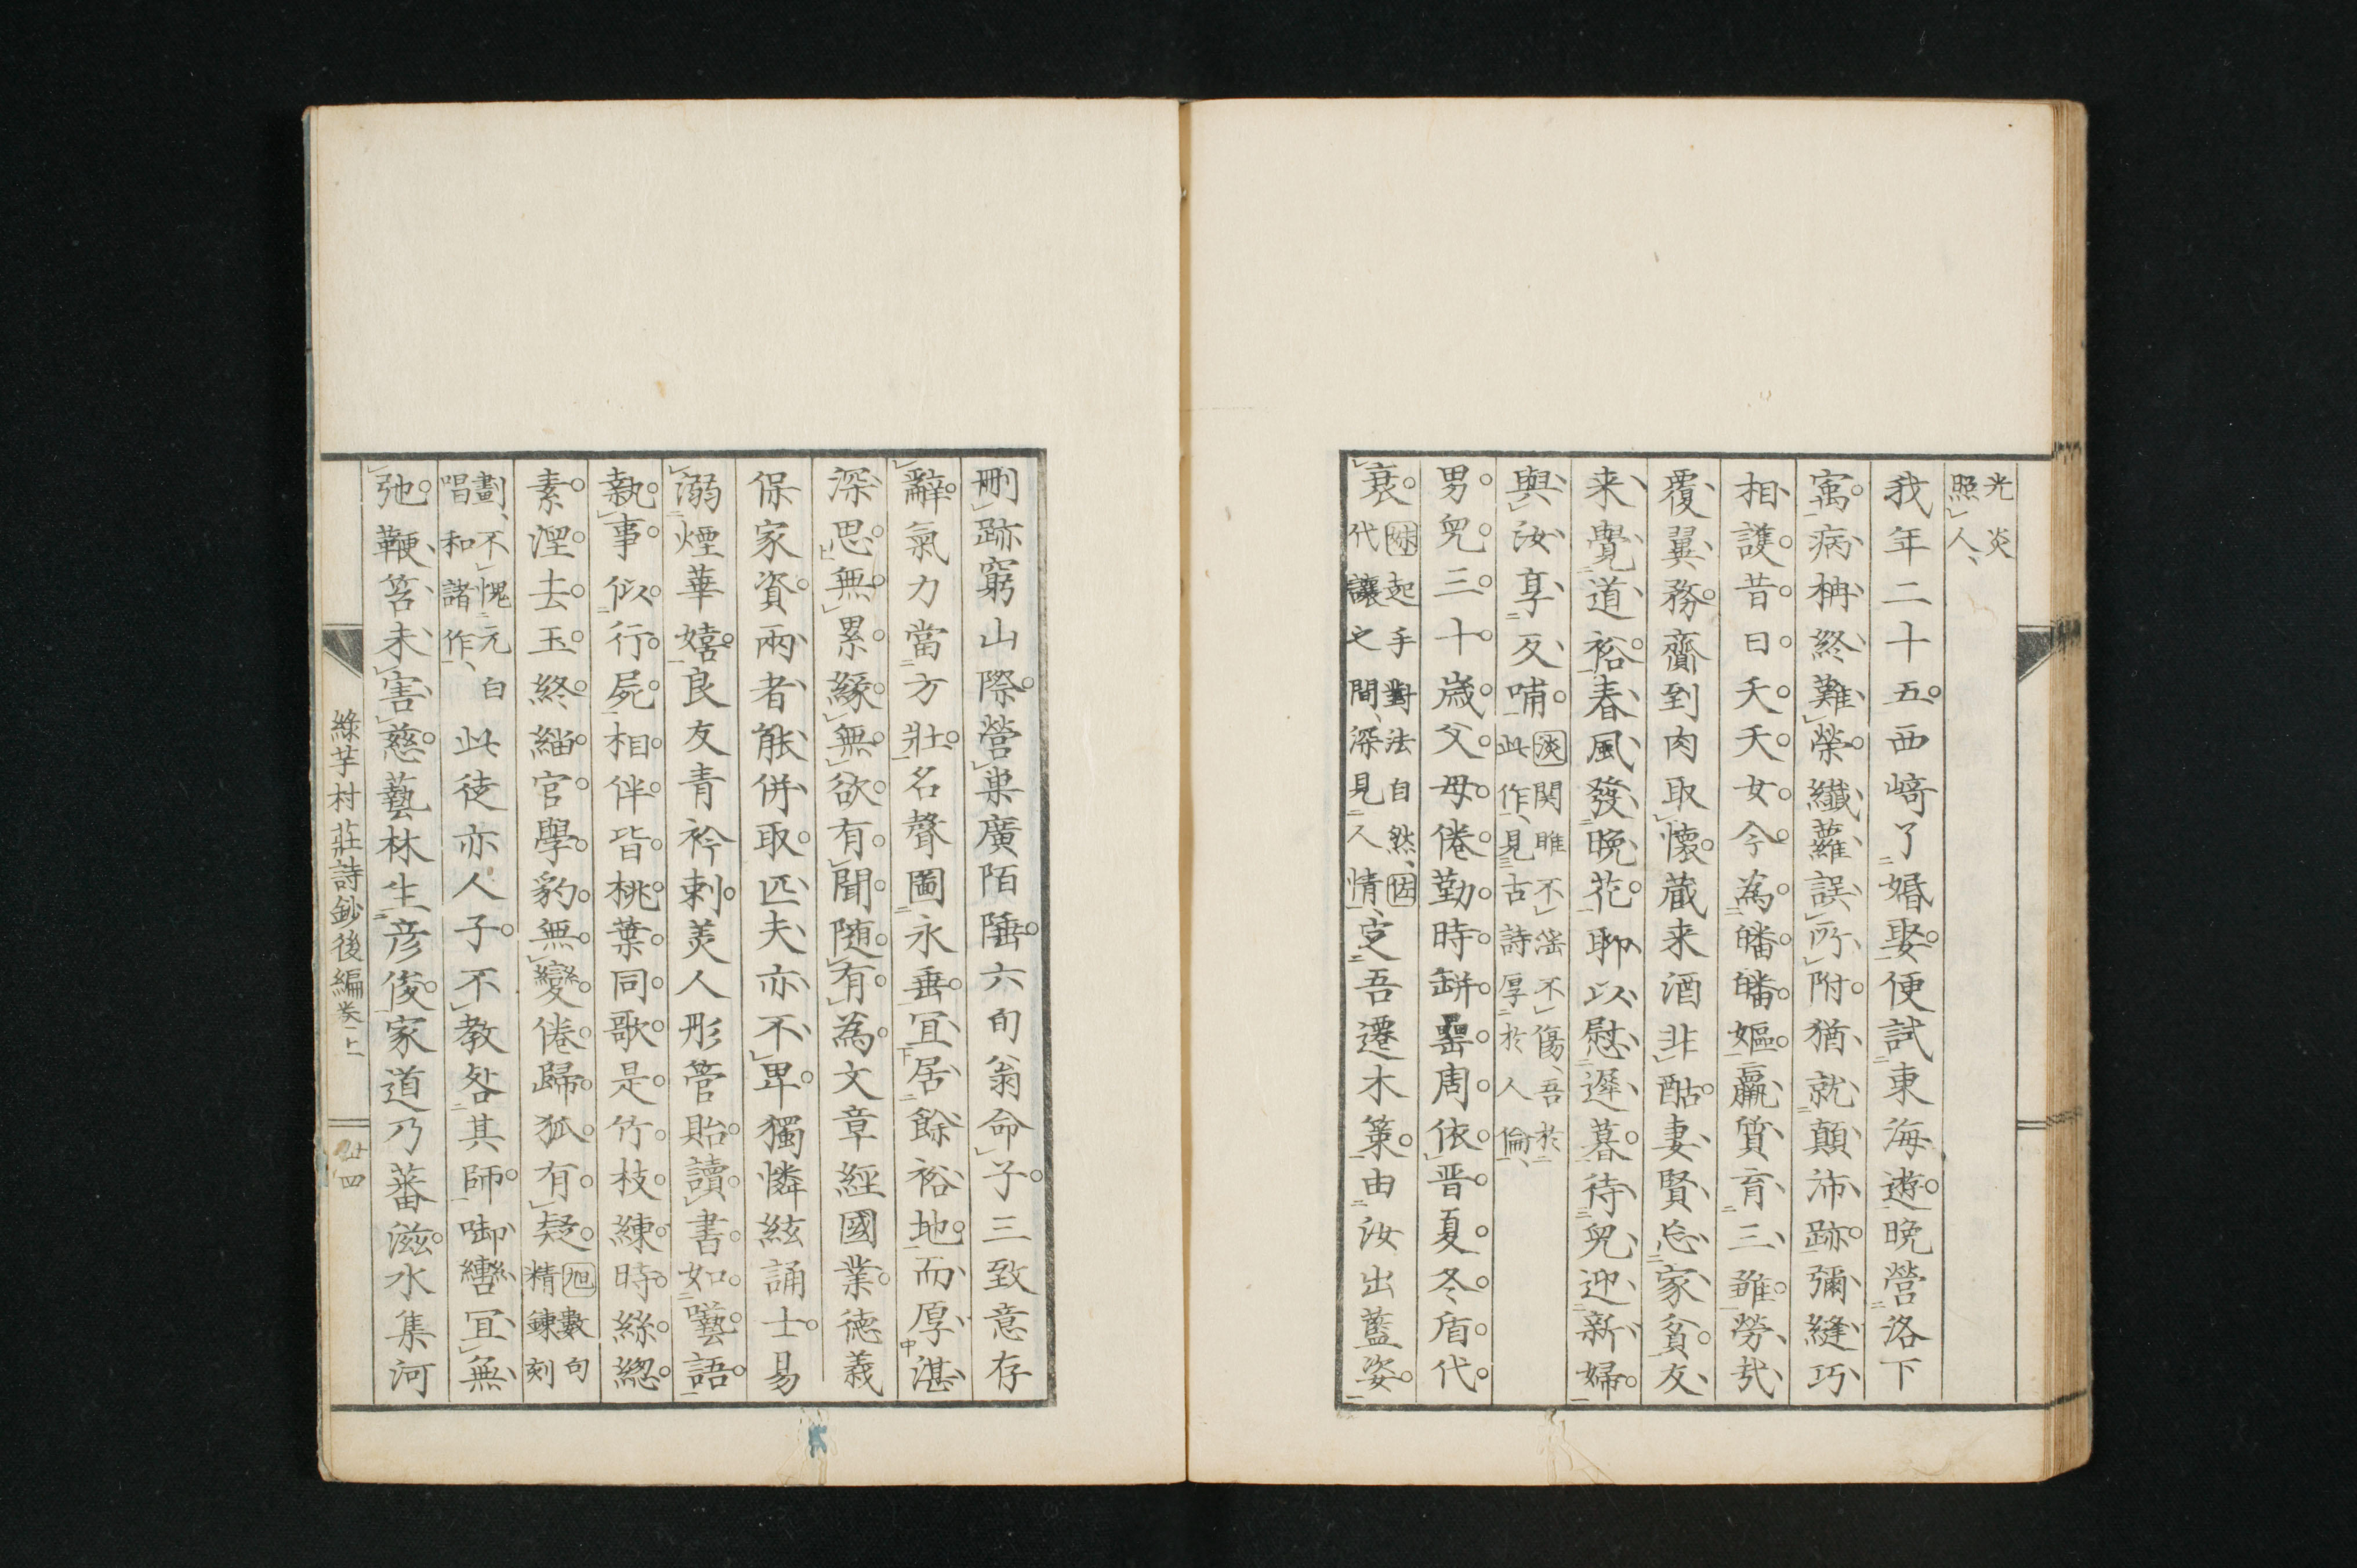 光炎
照人
我年二十五西﨑了婚娶便試東海遊晩營洛下
寓病枏終難榮纖蘿誤所附猶就顛沛跡彌縫巧
相護昔日夭夭女今為皤皤嫗羸質育三雖勞㢤
覆翼務齎到肉取懷蔵来酒非酤妻賢忘家貧友
来覺道裕春風發晩花聊以慰遲暮待兒迎新婦
與汝享反哺淡関雎不淫不傷吾於
此作見古詩厚於人倫
男兒三十歳父母倦勤時缾罍周依晋夏冬盾代
衰起手對法自然因
代讓之間深見人情定吾遷木策由汝出藍姿
刪跡窮山際營巢廣陌陲六旬翁命子三致意存
辭氣力當方壯名聲圖永垂冝居餘裕地而厚湛
深思無累緣無欲有聞随有為文章經國業德義
保家資兩者能併取匹夫亦不卑獨憐絃誦士易
溺煙華嬉良友青衿刺美人彤管貽讀書如囈語
執事似行屍相伴皆桃葉同歌是竹枝練時絲緫
素涅去玉終緇官學豹無變倦歸狐有疑旭數句
精錬刻
劃不愧元白
唱和諸作此徒亦人子不教咎其師啣轡冝無
弛鞭笞未害慈藝林生彦俊家道乃蕃滋水集河
綠芋村莊詩鈔後編
卷上
廿四